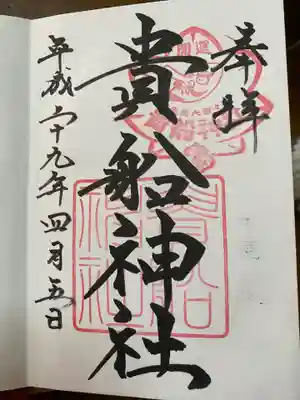 奉拝
貴船神社
平成二十九年四月五日